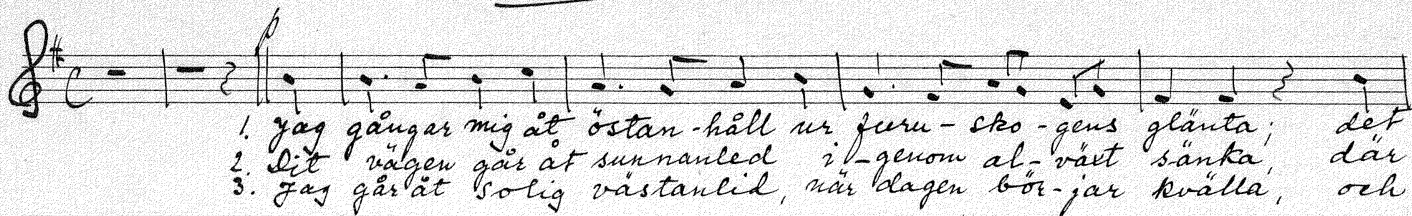 1. Jag gångar mig åt östan-håll ur furu-sko-gens glänta; det
2. Dit vägen går åt sunnanled i-genom al-växt sänka, där
3. Jag går åt solig västanlid, när dagen bör-jar kvälla, och